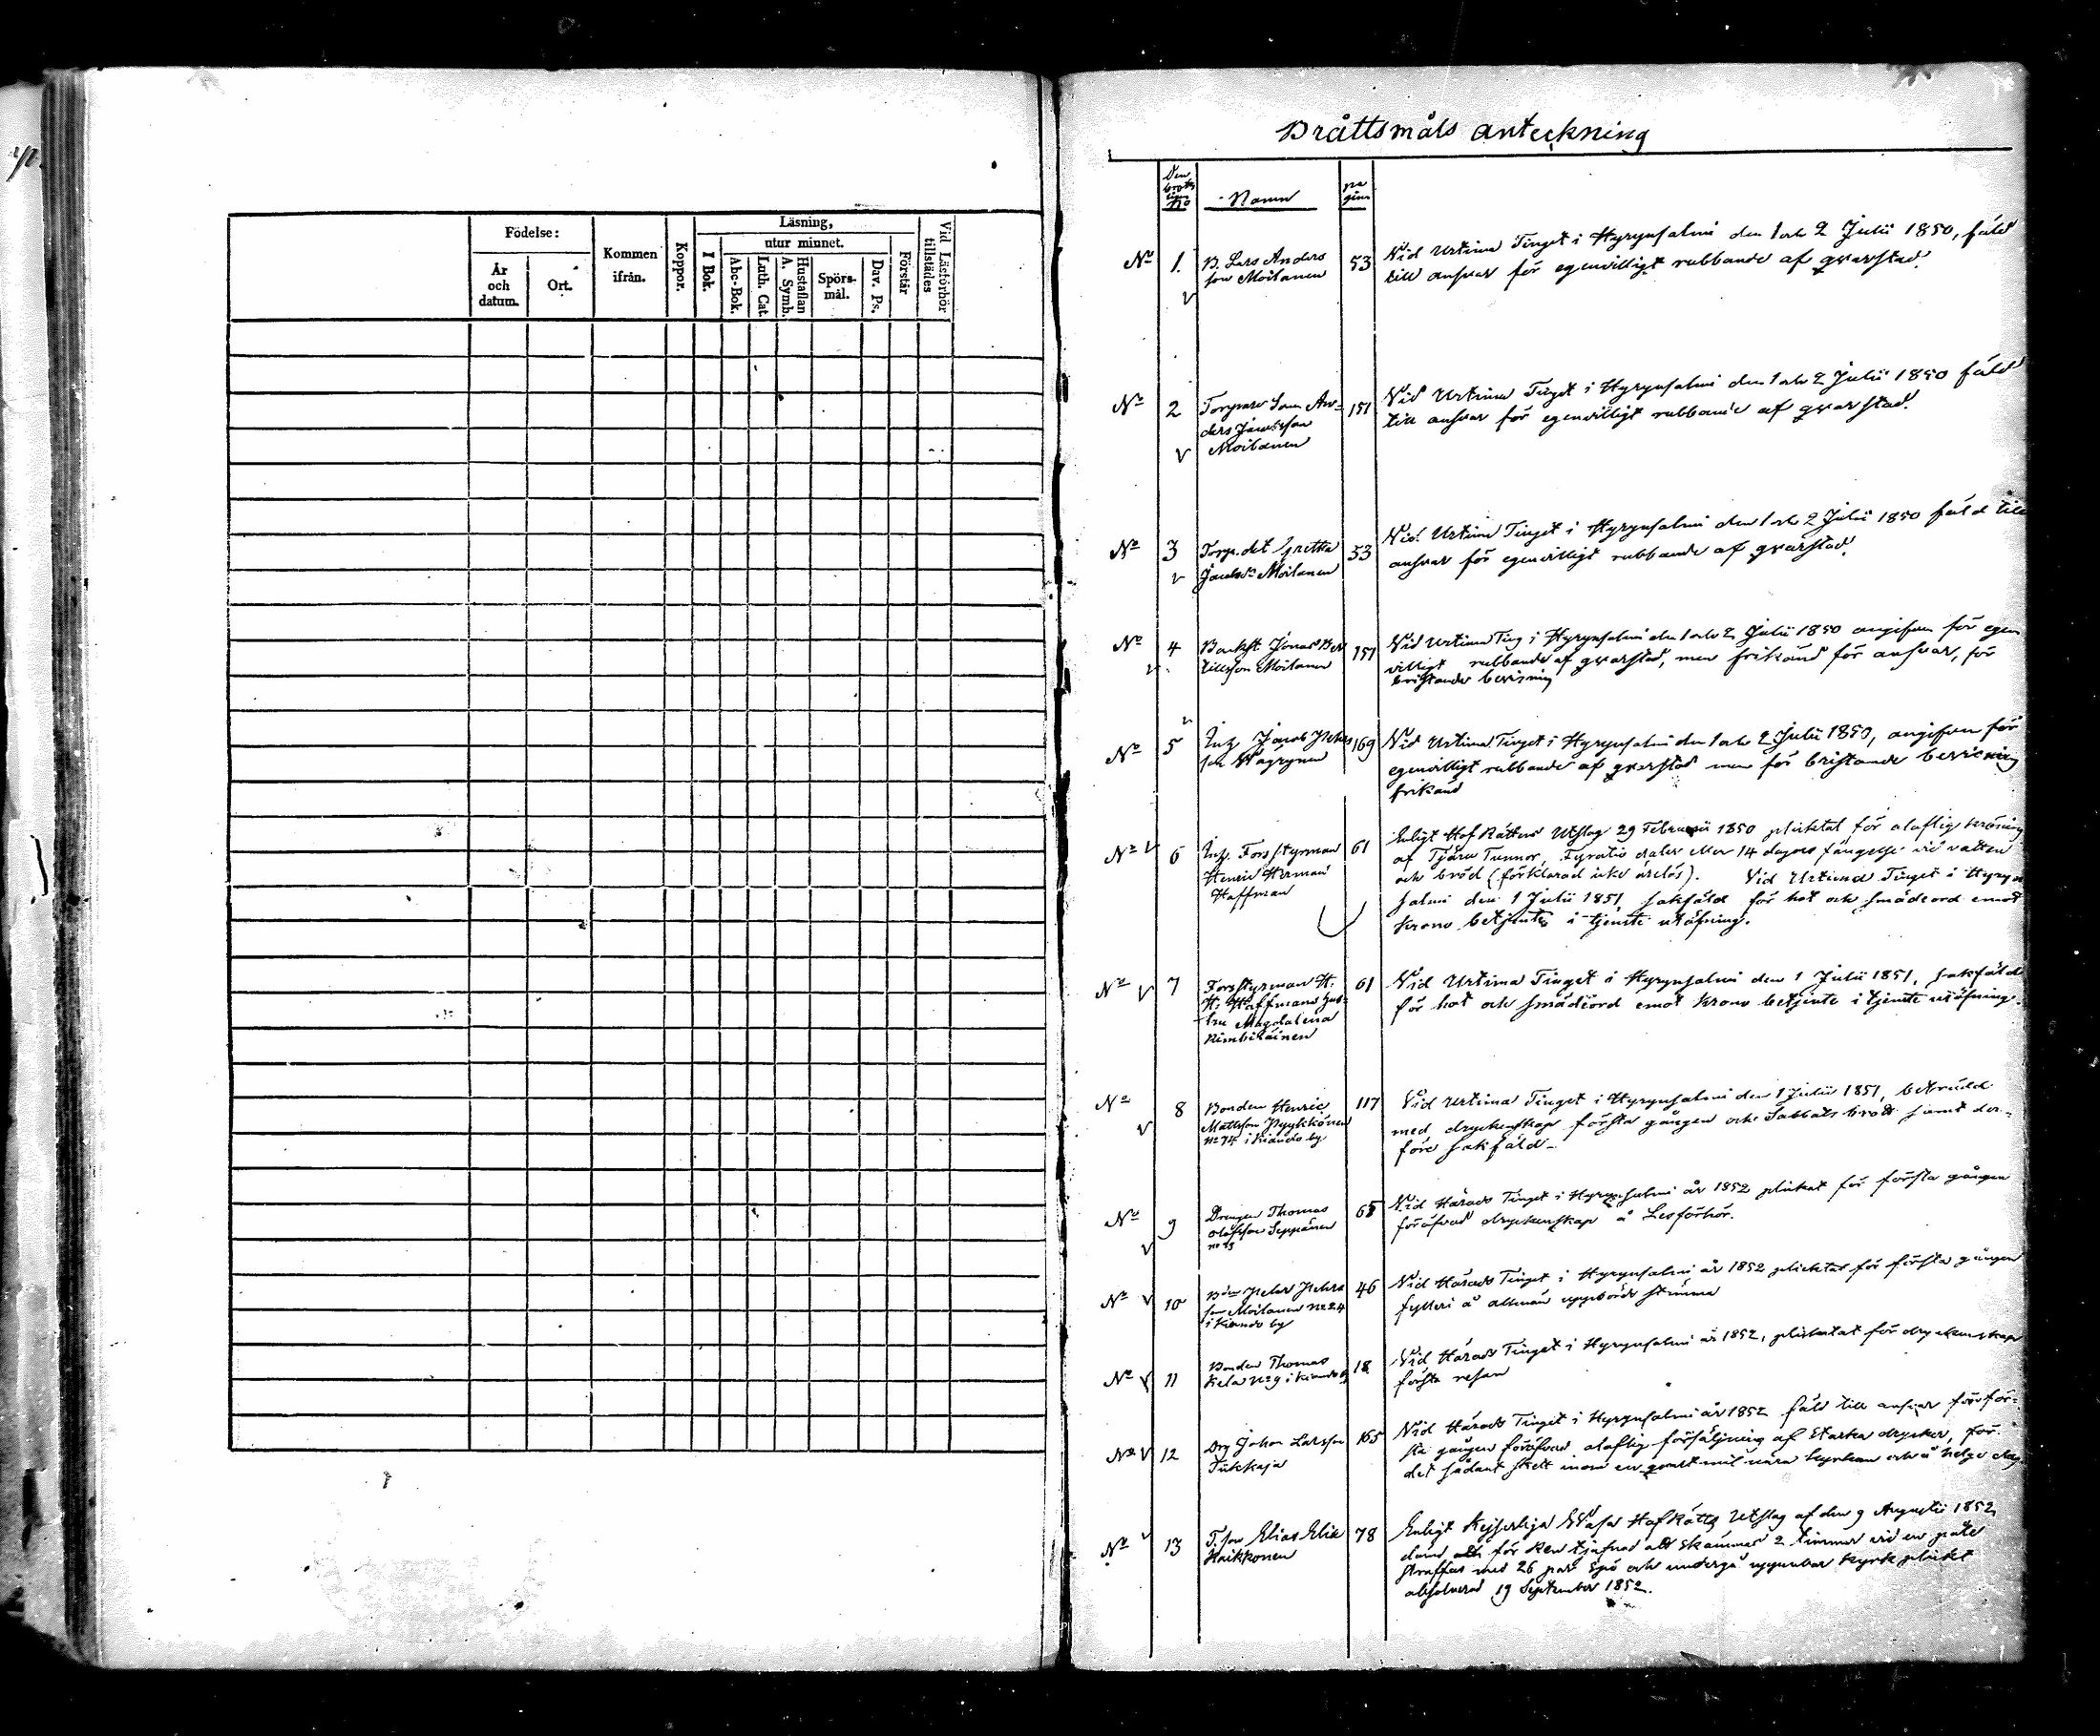 Födelse:
År
och
datum.
Ort.
Kommen
ifrån.
Koppor.
Läsning,
I Bok.
utur minnet.
Abc-Bok.
Luth. Cat.
Hustaflan
A. Symb.
Spörs-
mål.
Dav. Ps.
Förstår
Vid Läsförhör
tillstädes
Bråttsmåls anteckning
Den
brotts
ligas
No
Namn
pa
gina
No 1. B. Lars Anders 53 Vid Urtima Tinget i Hyrynsalmi den 1 och 2 Julii 1850, fäld
son Moilanen till ansvar för egenvilligt rubbande af qvarstad.
No 2 Torpare Son An- 151 Vid Urtima Tinget i Hyrynsalmi den 1 och 2 Julii 1850 fäld
ders Jacobsson till ansvar för egenvilligt rubbande af qvarstad.
Moilanen
No 3 Torp. det Gretha 53 Vid Urtima Tinget i Hyrynsalmi den 1 och 2 Julii 1850 fäld till
Jacobsdr Moilanen ansvar för egenvilligt rubbande af qvarstad.
No 4 Backst. Jonas Ber 151 Vid Urtima Ting i Hyrynsalmi den 1 och 2 Julii 1850 angifven för egen
tillsson Moilanen villigt rubbande af qvarstad, men frikänd för ansvar, för
bristande bevisning
No 5 Inh. Jacob Pehrs 169 Vid Urtima Tinget i Hyrynsalmi den 1 och 2 Julii 1850, angifven för
son Wäyrynen egenvilligt rubbande af qvarstad men för bristande bevisning
frikänd
No 6 Inh. Forstyrman 61 Enligt Hof Rättens Utslag 29 Februarii 1850 pliktat för olaflig kröning
Henric Herman af Tjäru Tunnor, Fyratio daler eller 14 dagars fängelse vid vatten
Haffman och bröd (förklarad icke ärelös). Vid Urtima Tinget i Hyryn
salmi den 1 Julii 1851, sakfäld för hot och smädeord emot
Krono betjente i tjenste utöfning.
No 7 Forstyrman H. 61 Vid Urtima Tinget i Hyrynsalmi den 1 Julii 1851, sakfäld
H. Haffmans hus- för hot och smädeord emot Krono betjente i tjenste utöfning.
tru Magdalena
Kimbiläinen
No 8 Bonden Henric 117 Vid Urtima Tinget i Hyrynsalmi den 1 Julii 1851, beträdd
Mattsson Pyykkönen med dryckenskap första gången och Sabbats brott samt der-
No 74 i Kiando by före sakfäld
No 9 Drengen Thomas 65 Vid Härads Tinget i Hyrynsalmi år 1852 pliktat för första gången
Olofsson Seppänen föröfvad dryckenskap å Lesförhör.
No 10 Bdn Pehr Pehrs 46 Vid Härads Tinget i Hyrynsalmi år 1852 pliktat för första gången
son Moilanen No 24 fylleri å allmän uppbörds stämma
i Kiando by
No 11 Bonden Thomas 18 Vid Härads Tinget i Hyrynsalmi år 1852, pliktat för dryckenskap
Kela No 9 i Kiando by första resan
No 12 Drg Johan Larsson 165 Vid Härads Tinget i Hyrynsalmi år 1852 fäld till ansvar för för-
Tikkaja sta gången föröfvad olaflig försäljning af Starka drycker, för
det sådant skett inom en qvart mil nära Kyrkan och å helge dag
No 13 T. son Elias Elia 78 Enligt Kejserliga Wasa Hof Rätts Utslag af den 9 Augusti 1852
Haikkonen dömd för Ren tjufnad att skämmas 2 timmar vid en påle
straffas med 26 par Spö och undergå uppenbar Kyrkoplickt
absolverad 19 September 1852.